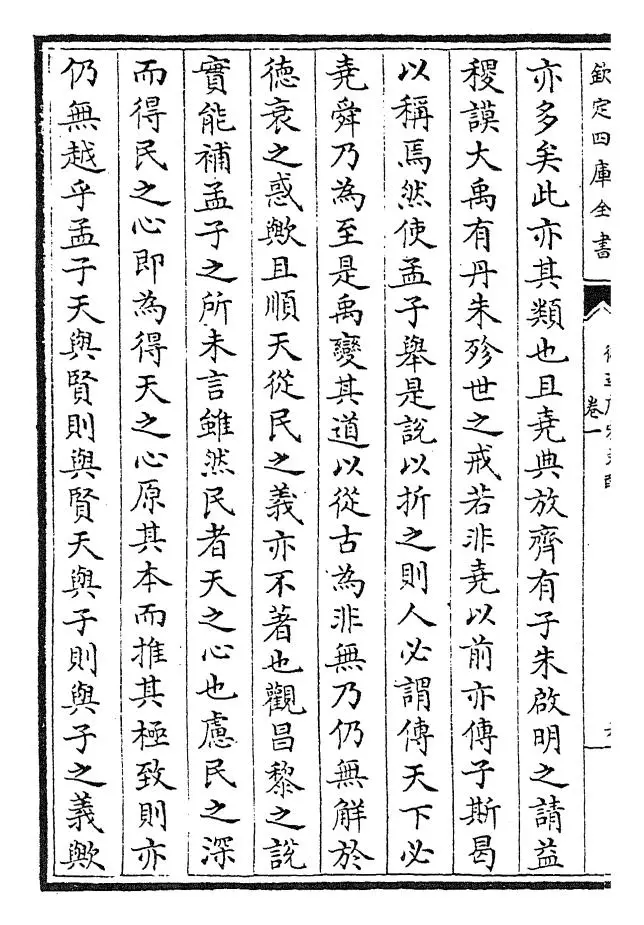 欽定四庫全書
卷一
亦多矣此亦其類也且堯典放齊有子朱啟明之請益
稷謨大禹有丹朱殄世之戒若非堯以前亦傳子斯曷
以稱焉然使孟子舉是說以折之則人必謂傳天下必
堯舜乃為至是禹變其道以從古為非無乃仍無解於
德衰之惑歟且順天從民之義亦不著也觀昌黎之說
實能補孟子之所未言雖然民者天之心也慮民之深
而得民之心即為得天之心原其本而推其極致則亦
仍無越乎孟子天與賢則與賢天與子則與子之義歟